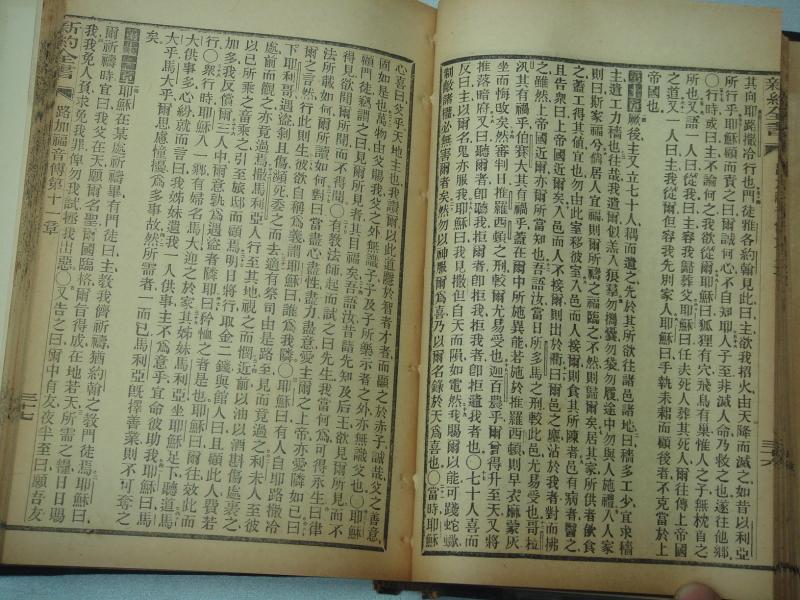 新約全書
三十六
其向耶路撒冷行也門徒雅各約翰見此曰主欲我招火由天降而滅之如昔以利亞
所行乎耶穌顧而責之曰爾誠何心不自知耳人子至非滅人命乃救之也遂往他鄉
〇行時或曰主不論何之我欲從爾耶穌曰狐狸有穴飛鳥有巢惟人之子無枕首之
所也又語一人曰從我曰主容我歸葬父耶穌曰任夫死人葬其死人爾往傳上帝國
之道又一人曰主我從爾但容我先別家人耶穌曰手執耒耜而顧後者不克當於上
帝國也
第十章厥後主又立七十人耦而遣之先於其所欲往諸邑諸地曰穡多工少宜求穡
主遣工力穡也往哉我遣爾似羔入狼羣勿橐囊勿袋勿履途中勿與人施禮入人家
則曰斯家福兮倘居人宜福則爾所禱之福臨之不然則歸爾矣居其家所供者飲食
之蓋工得其值宜也勿由此室移彼室入邑而人接爾則食其所陳者邑有病者醫之
且告衆曰上帝國近爾矣入邑而人不接爾則出於衢曰爾邑之塵沾於我者對而拂
之雖然上帝國近爾亦爾所當知也吾語汝當日所多馬之刑較此邑尤易受也哥拉
汛其有禍乎伯賽大其有禍乎蓋在爾中所施異能若施於推羅西頓則早衣麻蒙灰
坐而悔改矣然審判日推羅西頓之刑較爾尤易受也迦百農乎爾曾得升至天又將
推落暗府又曰聽爾者卽聽我拒爾者卽拒我拒我者卽拒遣我者也〇七十人喜而
反曰主以爾名鬼亦服我耶穌曰我見撒但自天而隕如電然我賜爾以能可踐蛇蠍
制敵諸權必無害爾者矣然勿以神服爾爲喜乃以爾名錄於天爲喜也〇當時耶穌
心喜曰父乎天地主也我讚爾以此道隱於智者才者而顯之於赤子誠哉父之善意
固如是也萬物由父賜我父之外無識子子及子所樂示者之外亦無識父〇耶穌
顧門徒竊謂之曰見爾所見者其目福矣吾語汝昔諸先知及后王欲見爾所見而不
得見欲聞爾所聞而不得聞〇有教法師起而試之曰先生我當何爲可得永生曰律
法所載如何爾所讀如何對曰當盡心盡性盡力盡意愛主爾之上帝亦愛隣如己曰
爾之言然行此則生彼欲自稱爲義謂耶穌曰誰爲我隣〇耶穌曰有人自耶路撒冷
下耶利哥遇盜剝且傷瀕死委之而去適有祭司由是路至見而竟過之利未人至彼
處前而觀之亦竟過焉撒馬利亞人行至其地視之而憫近前以油以酒斟傷處裹之
以己所乘之畜乘之引至旅邸而顧焉明日將行取金二錢與館人曰且顧此人費若
加多我反償爾三人中爾意孰爲遇盜者隣耶曰矜恤之者是也耶穌曰爾往效此而
行〇衆行時耶穌入一鄉有婦名馬大迎之於家其姊妹馬利亞坐耶穌足下聽道馬
大供事多心紛就而言曰我姊妹遺我一人供事主不爲意乎宜命彼助我耶穌曰馬
大乎馬大乎爾思慮憧擾爲多事故然所需者一而已馬利亞旣擇善業則不可奪之
矣
第十一章耶穌在某處祈禱畢有門徒曰主教我儕祈禱猶約翰之教門徒焉耶穌曰
爾祈禱時宜曰我父在天願爾名聖爾國臨格爾旨得成在地若天所需之糧日日賜
我我免人負求免我罪俾勿我試拯我出惡〇又告之曰爾中有友夜半至曰顧吾友
新約全書
路加福音傳第十一章
三十七